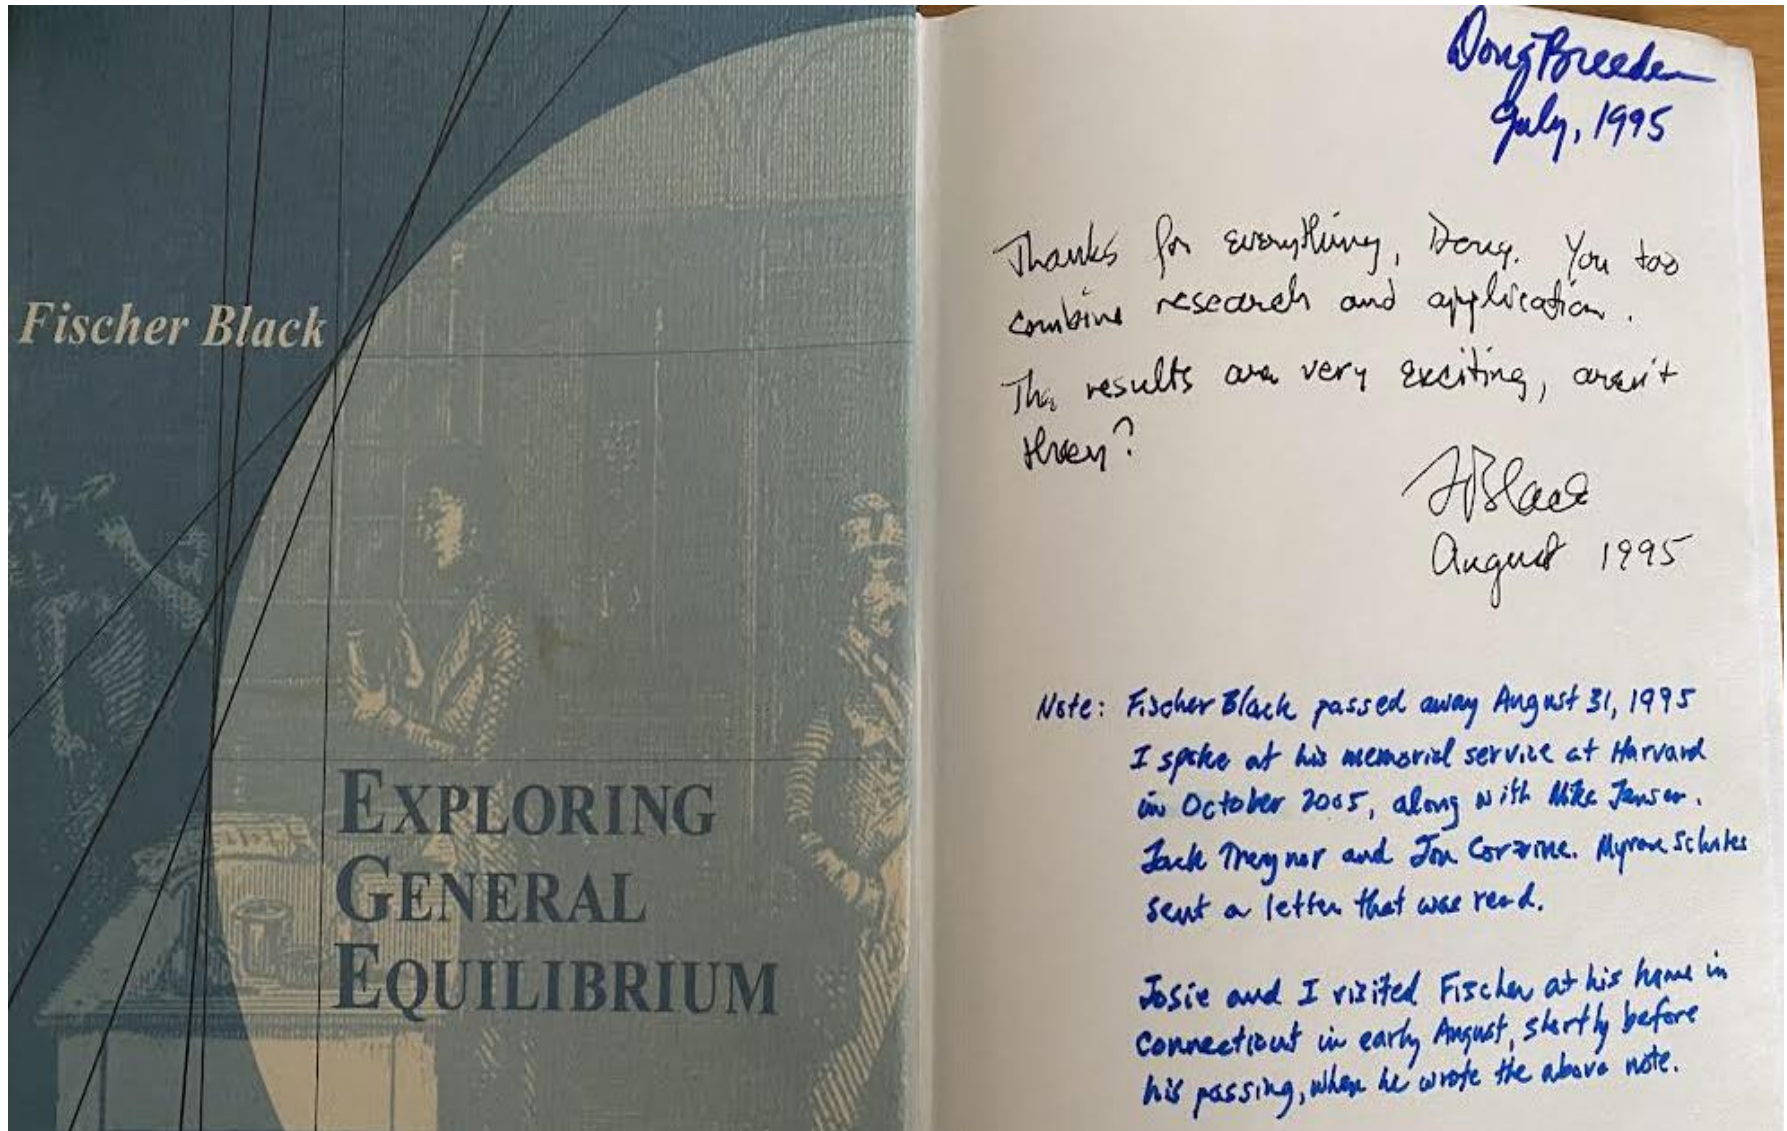 Fischer Black
EXPLORING
GENERAL
EQUILIBRIUM
Doug Breeden
July, 1995
Thanks for everything, Doug. You too
combine research and application.
The results are very exciting, aren't
they?
FBlack
August 1995
Note: Fischer Black passed away August 31, 1995
I spoke at his memorial service at Harvard
in October 2005, along with Mike Jensen.
Jack Treynor and Jon Corzine. Myron Scholes
sent a letter that was read.
Josie and I visited Fischer at his home in
Connecticut in early August, shortly before
his passing, when he wrote the above note.